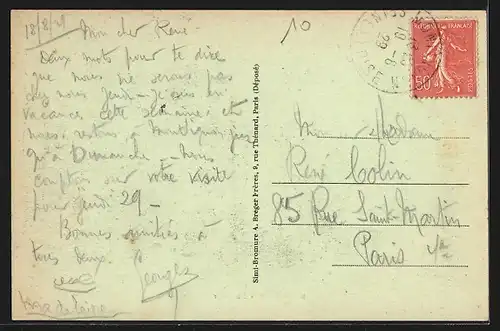 18/8/29
Mon cher René
Deux mots pour te dire
que nous ne serons pas
chez nous jeudi - je suis en
vacances cette semaine et
nous restons à
qu'à Dimanche - nous
comptons sur votre visite
pour jeudi 29 -
Bonnes amitiés à
tous deux.
Georges
10
Simi-Bromure A. Breger Frères, 9, rue Thénard, Paris (Déposé)
REPUBLIQUE FRANÇAISE
50
POSTES
Madame
René Colin
85 Rue Saint-Martin
Paris